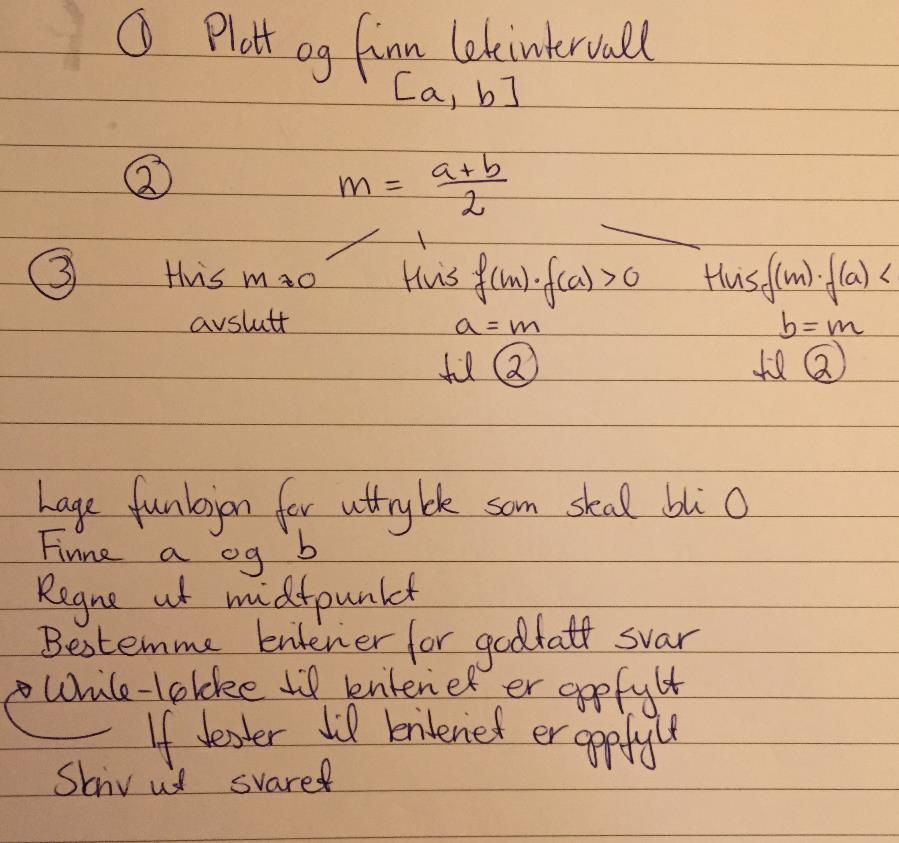 ① Plott og finn leteintervall
[a, b]
② m = a+b / 2
③ Hvis m≈0 Hvis f(m)·f(a) > 0 Hvis f(m)·f(a) <
avslutt a = m b = m
til ② til ②
Lage funksjon for uttrykk som skal bli 0
Finne a og b
Regne ut midtpunkt
Bestemme kriterier for godtatt svar
While-løkke til kriteriet er oppfylt
If tester til kriteriet er oppfylt
Skriv ut svaret